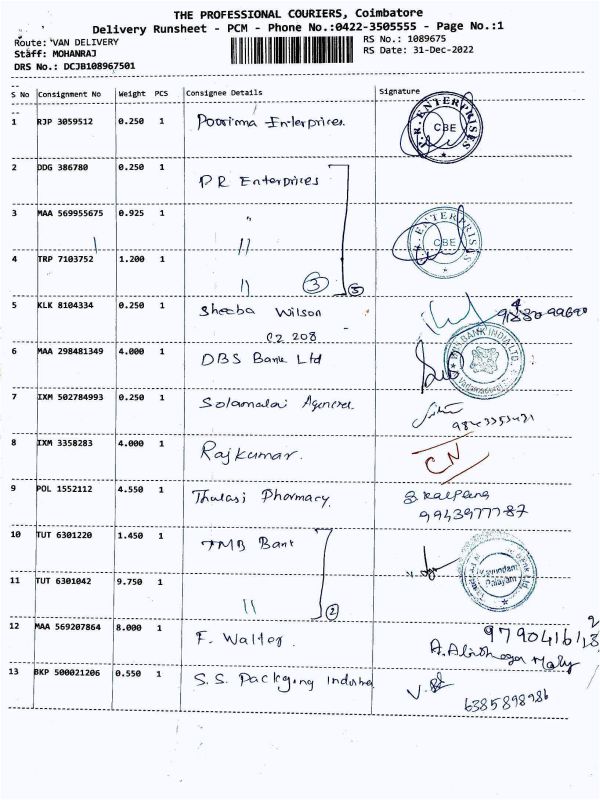 THE PROFESSIONAL COURIERS, Coimbatore
Delivery Runsheet - PCM - Phone No.:0422-3505555 - Page No.:1
Route: VAN DELIVERY
RS No.: 1089675
Staff: MOHANRAJ
RS Date: 31-Dec-2022
DRS No.: DCJB108967501
S No Consignment No Weight PCS Consignee Details Signature
1 RJP 3059512 0.250 1 Poorima Enterprices. ENTERPRISES CBE
2 DDG 386780 0.250 1 PR Enterprices
3 MAA 569955675 0.925 1 " ENTERPRISES CBE
4 TRP 7103752 1.200 1 " 3 5
5 KLK 8104334 0.250 1 Sheeba Wilson
C2 208
6 MAA 298481349 4.000 1 DBS Bank Ltd BANK INDIA LTD.
7 IXM 502784993 0.250 1 Solamalai Agencies. 9843353421
8 IXM 3358283 4.000 1 Rajkumar. CN
9 POL 1552112 4.550 1 Thulasi Pharmacy. Kalpana
9943977787
10 TUT 6301220 1.450 1 TMB Bank
11 TUT 6301042 9.750 1 " 2 Palayam
12 MAA 569207864 8.000 1 F. Walter.
13 BKP 500021206 0.550 1 S.S. Packging V.
6385898986